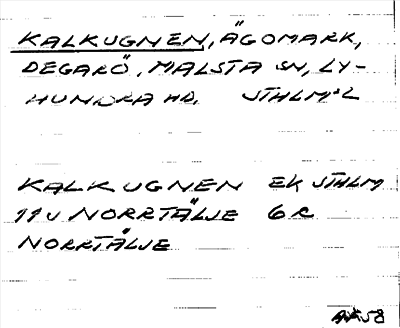 KALKUGNEN, ÄGOMARK,
DEGARÖ, MALSTA SN, LY-
HUNDRA HD. STHLM:L
KALKUGNEN EK STHLM
11U NORRTÄLJE 6C
NORRTÄLJE